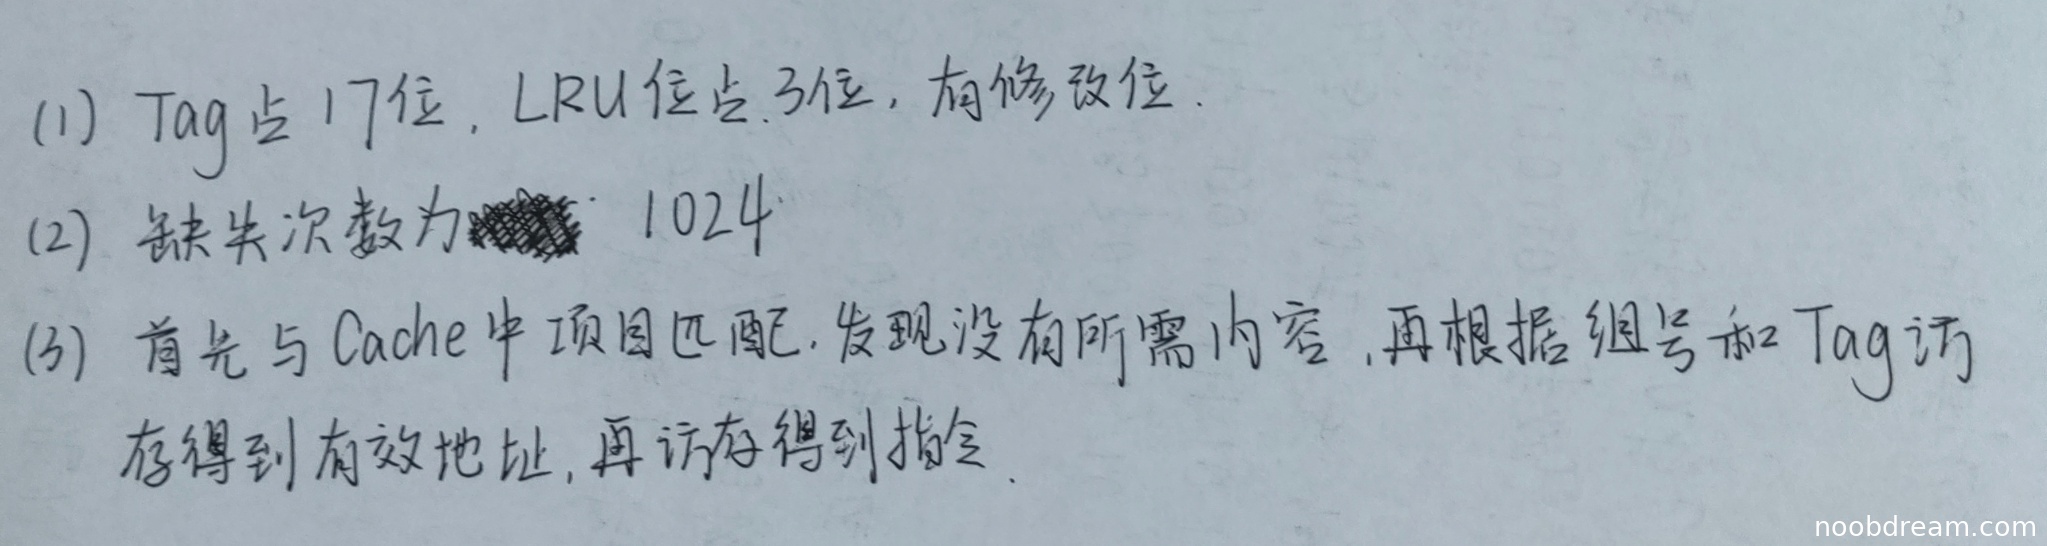 (1) Tag占17位, LRU位占3位, 有修改位.
(2) 缺失次数为 1024
(3) 首先与Cache中项目匹配,发现没有所需内容,再根据组号和Tag访
存得到有效地址,再访存得到指令.
noobdream.com